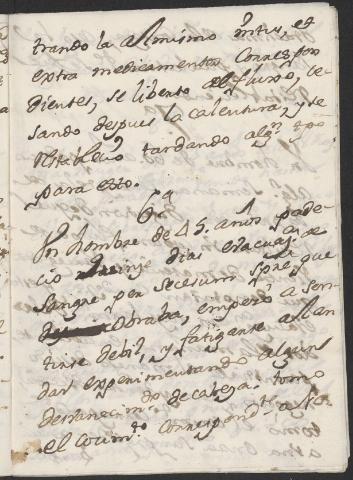 trando la asimismo intus, et
extra medicamentos correspon
dientes, se liberto del fluxo, ce
sando despues la calentura, y se
restablecio tardando algn. tpo
para esto.
6a.
Un hombre de 45. años pade
cio quinze dias evacuaon. de
sangre per secesum spre. que
obraba, empezó a sen
tirse debil, y fatigarse al an
dar experimentando algun
desvanecimto. de cabeza. tomo
el cocimto. correspondte. a